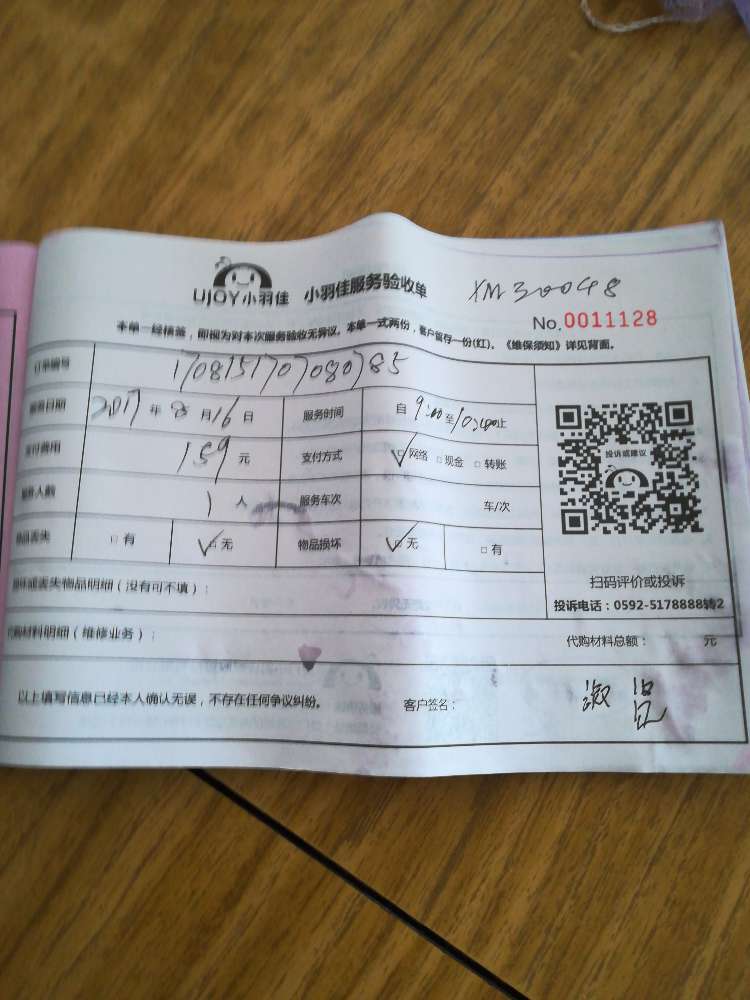 UJOY小羽佳 小羽佳服务验收单 XM30048
No.0011128
本单一经签, 即视为对本次服务验收无异议。本单一式两份, 客户留存一份(红)。《维保须知》详见背面。
订单编号 1708151707080785
服务日期 2017 年 8 月 16 日 服务时间 自 9:00 至 10:00 止
支付费用 159 元 支付方式 ✓网络 □现金 □转账
服务人数 1 人 服务车次 车/次
物品丢失 □有 ✓□无 物品损坏 ✓□无 □有
投诉或建议
扫码评价或投诉
投诉电话:0592-5178888转2
损坏或丢失物品明细(没有可不填):
代购材料明细(维修业务): 代购材料总额: 元
以上填写信息已经本人确认无误,不存在任何争议纠纷。 客户签名: 淑